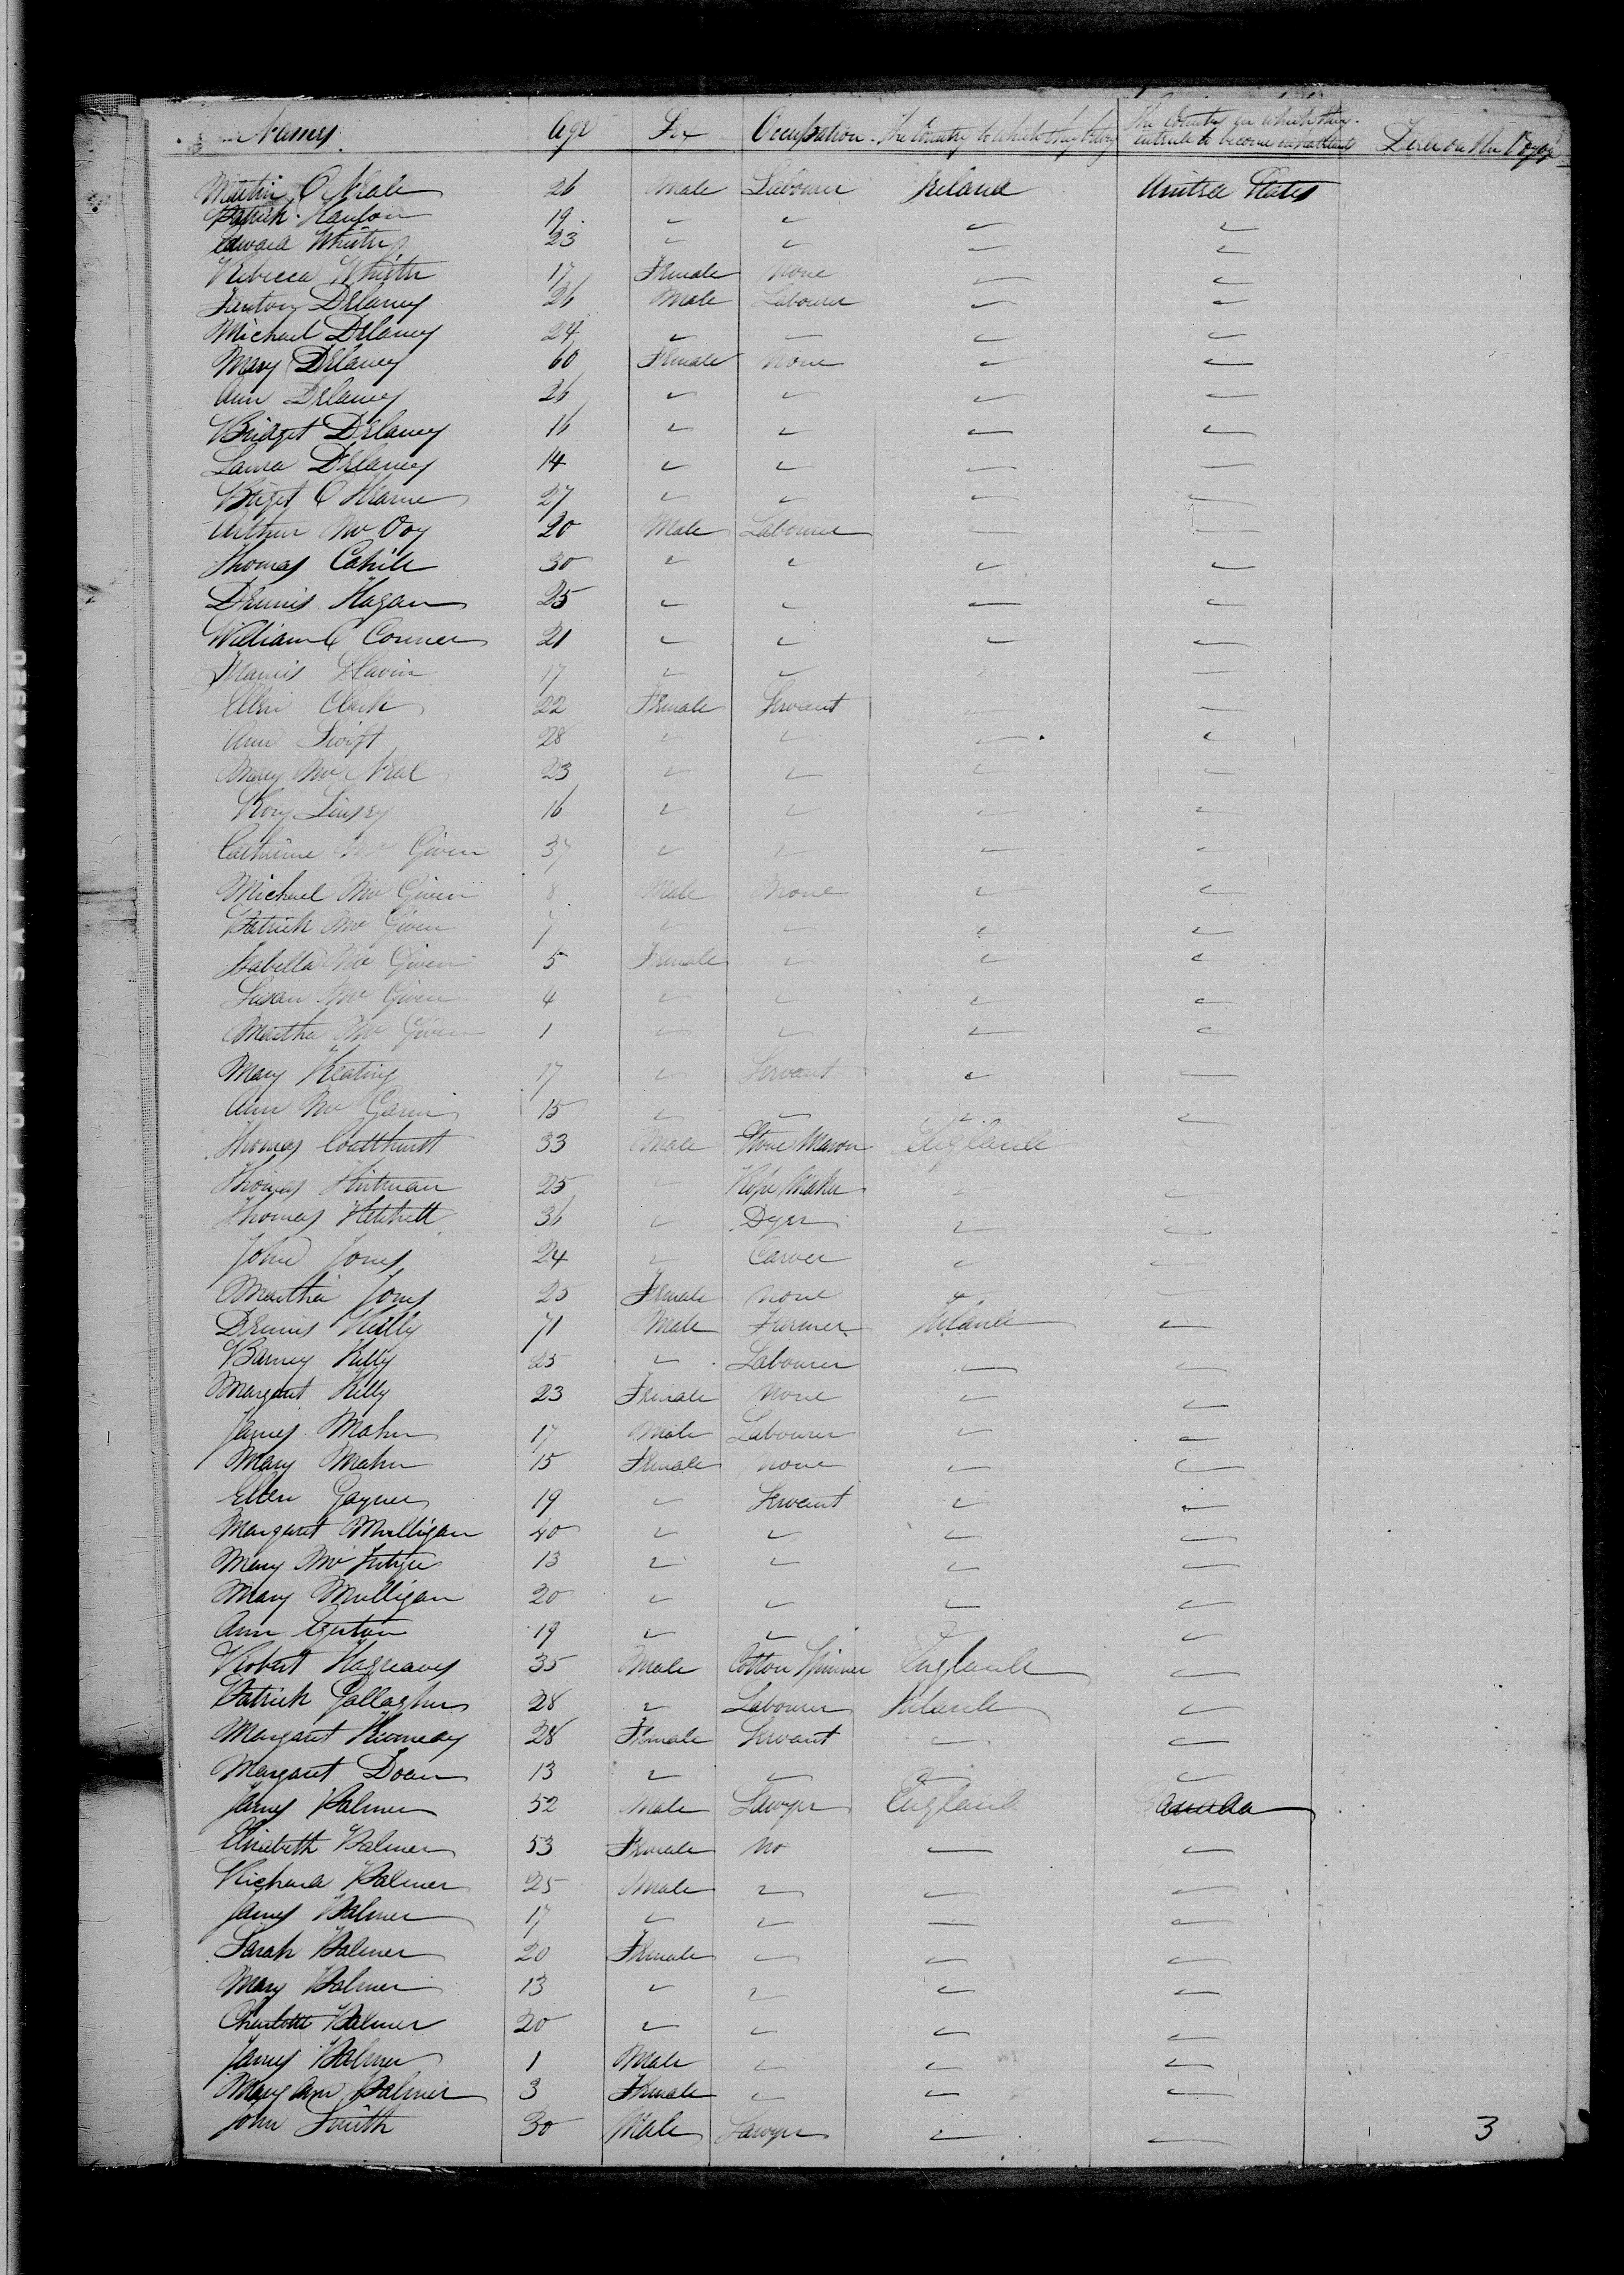 Names Age Sex Occupation The Country to which they belong The Country in which they intend to become inhabitants Died on the Voyage
Martin O Neale 26 Male Labourer Ireland United States
Patrick Hanlon 19 " " " "
Edward 23 " " " "
Rebecca 17 Female None " "
Fenton Delaney 26 Male Labourer " "
Michael Delaney 24 " " " "
Mary Delaney 60 Female None " "
Ann Delaney 26 " " " "
Bridget Delaney 16 " " " "
Laura Delaney 14 " " " "
Briget O Hearne 27 " " " "
Arthur Mc Voy 20 Male Labourer " "
Thomas Cahill 30 " " " "
Dennis Hagan 25 " " " "
William O Conner 21 " " " "
Francis Slavin 17 " " " "
Ellen Clark 22 Female Servant " "
Ann Swift 28 " " " "
Mary Mc Neal 23 " " " "
Rory Linsey 16 " " " "
Catherine Mc Given 37 " " " "
Michael Mc Given 8 Male None " "
Patrick Mc Given 7 " " " "
Isabella Mc Given 5 Female " " "
Susan Mc Given 4 " " " "
Martha Mc Given 1 " " " "
Mary Keating 17 " Servant " "
Ann Mc 15 " " " "
Thomas Coulthurst 33 Male Stone Mason England "
Thomas 25 " Rope Maker " "
Thomas 36 " Dyer " "
John Jones 24 " Carver " "
Martha Jones 25 Female None " "
Dennis Kelly 71 Male Farmer Ireland "
Barney Kelly 25 " Labourer " "
Margaret Kelly 23 Female None " "
James Maher 17 Male Labourer " "
Mary Maher 15 Female None " "
Ellen Gayner 19 " Servant " "
Margaret Mulligan 40 " " " "
Mary Mc 13 " " " "
Mary Mulligan 20 " " " "
Ann Egerton 19 " " " "
Robert Hagreaves 35 Male Cotton Spinner England "
Patrick Gallagher 28 " Labourer Ireland "
Margaret 28 Female Servant " "
Margaret Doan 13 " " " "
James Palmer 52 Male Lawyer England Canada
Elizabeth Palmer 53 Female No " "
Richard Palmer 25 Male " " "
James Palmer 17 " " " "
Sarah Palmer 20 Female " " "
Mary Palmer 13 " " " "
Charlotte Palmer 20 " " " "
James Palmer 1 Male " " "
Mary Ann Palmer 3 Female " " "
John Smith 30 Male Lawyer " "
3